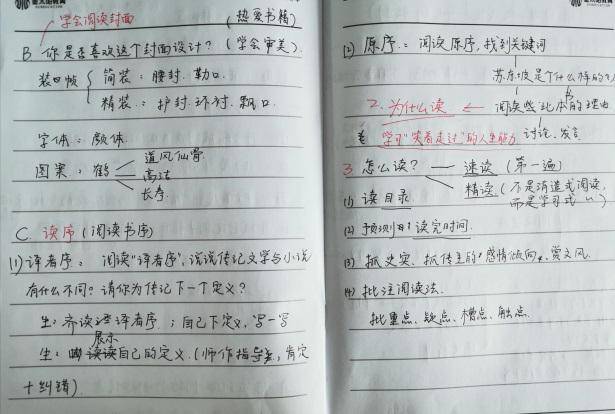 金太阳教育
学会阅读封面
(热爱书籍)
B 你是否喜欢这个封面设计? (学会审美).
装帧 { 简装: 腰封. 勒口.
精装: 护封. 环衬. 飘口.
字体: 颜体.
图案: 鹤 道风仙骨.
高洁
长寿.
C. 读序 (阅读书序)
(1) 译者序: 阅读"译者序", 说说传记文学与小说
有什么不同? 请你为传记下一个定义?
生: 齐读 译者序.; 自己下定义, 写一写
展示
生: 读自己的定义. (师作指导, 肯定
十纠错)
(2) 原序: 阅读原序, 找到关键词
苏东坡是个什么样的人
2. 为什么读 ← 阅读 此本的理由
学习"笑着走过"的人生能力 讨论、发言
3 怎么读? 速读 (第一遍)
精读 (不是消遣式阅读,
而是学习式 〃)
(1) 读目录.
(2) 预测 读完时间.
(3) 抓史实、抓传主的 感情倾向. 赏文风.
(4) 批注阅读法.
批重点、疑点、槽点、触点.